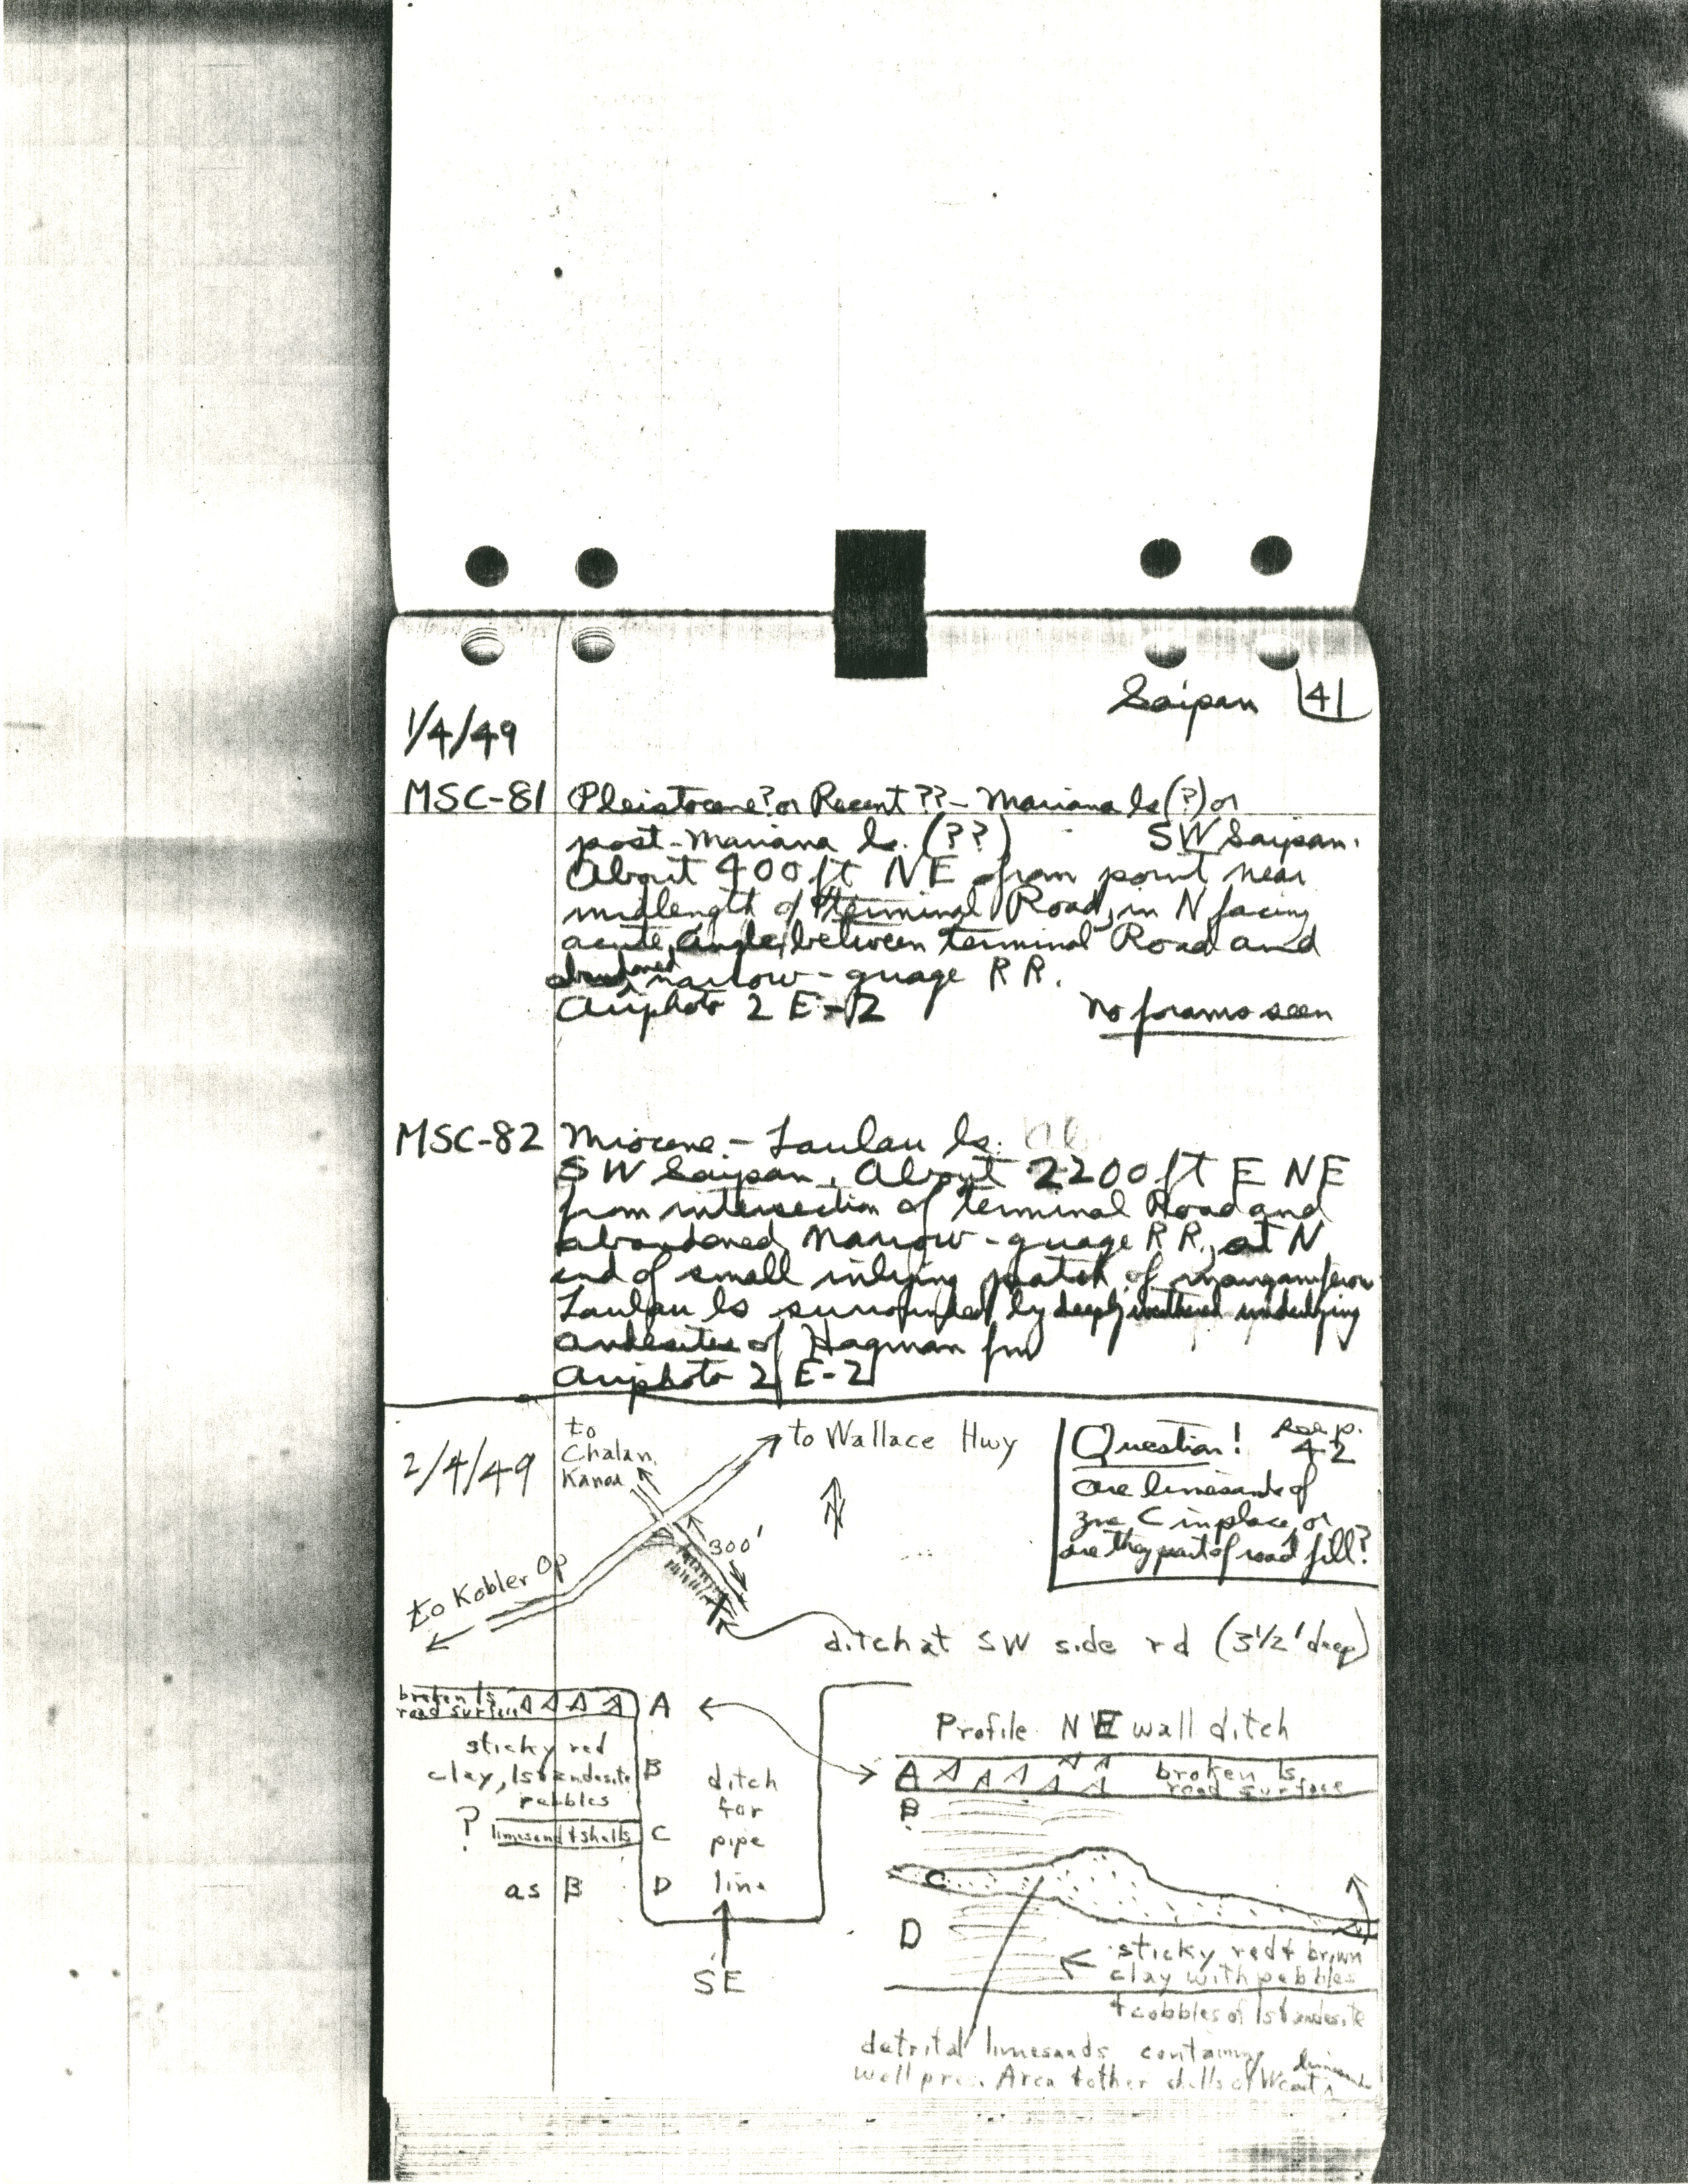 Saipan 41
1/4/49
MSC-81 Pleistocene? or Recent?? - Mariana ls (?) or
post-Mariana ls. (??) SW Saipan.
About 400 ft NE from point near
midlength of terminal Road, in N facing
acute angle between terminal Road and
abandoned narrow-guage RR.
Airphoto 2 E-12
No forams seen
MSC-82 Miocene - Laulau ls.
SW Saipan. About 2200 ft E NE
from intersection of terminal Road and
abandoned narrow-guage RR, at N
end of small inlying patch of manganiferous
Laulau ls surrounded by deeply weathered underlying
andesites of Hagman fm
Airphoto 2 E-2
2/4/49
to
Chalan
Kanoa
to Wallace Hwy
N
300'
to Kobler Op
Question! See p.
42
are limesands of
zone C in place, or
are they part of road fill?
ditch at SW side rd (3 1/2' deep)
broken ls
road surface
A
sticky red
clay, ls & andesite
pebbles
B
? limesand & shells C
as B D
ditch
for
pipe
line
SE
Profile NE wall ditch
A broken ls
road surface
B
C
D
sticky red & brown
clay with pebbles
& cobbles of ls & andesite
detrital limesands containing
well pres. Arca & other shells of